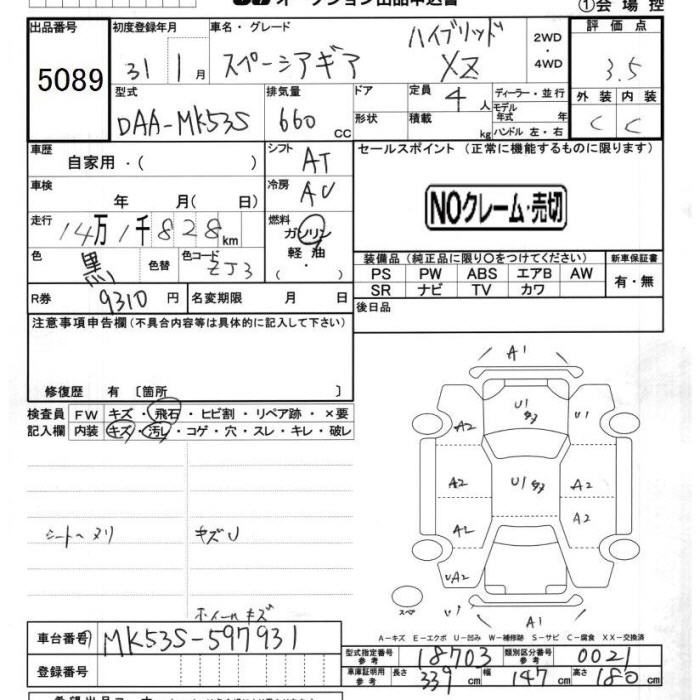 オークション出品申込書
①会場控
出品番号 初度登録年月 車名・グレード 評価点
5089 31 1月 スペーシアギア ハイブリッド XZ 2WD・4WD 3.5
型式 排気量 ドア 定員 4人 ディーラー・並行 外装 内装
DAA-MK53S 660cc 形状 積載 kg モデル年式 年 C C
ハンドル 左・右
車歴 自家用・( ) シフト AT セールスポイント (正常に機能するものに限ります)
車検 年 月( 日) 冷房 AC
NOクレーム・売切
走行 14万1千828km 燃料 ガソリン
軽油
( ・ )
色 黒 色替 色コード ZJ3
装備品 (純正品に限り○をつけてください) 新車保証書
PS PW ABS エアB AW 有・無
SR ナビ TV カワ
R券 9310円 名変期限 月 日 後日品
注意事項申告欄 (不具合内容等は具体的に記入して下さい)
修復歴 有 〔箇所 〕
検査員 FW キズ・飛石・ヒビ割・リペア跡・×要
記入欄 内装 キズ・汚レ・コゲ・穴・スレ・キレ・破レ
A1
U1 U1
A2
A2 U1 A2
A2 A2
UA2
スペア U1 A1
シートヘタリ キズU
ホイールキズ
A-キズ E-エクボ U-凹み W-補修跡 S-サビ C-腐食 XX-交換済
車台番号 MK53S-597931
型式指定番号 参考 18703 類別区分番号 参考 0021
登録番号
車庫証明用 参考 長さ 339cm 幅 147cm 高さ 180cm